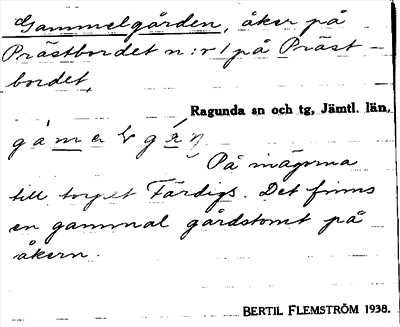 Gammelgården, åker på
Prästbordet n:r 1 på Präst-
bordet.
Ragunda sn och tg, Jämtl. län.
På mägorna
till torpet Färdigs. Det finns
en gammal gårdstomt på
åkern.
BERTIL FLEMSTRÖM 1938.